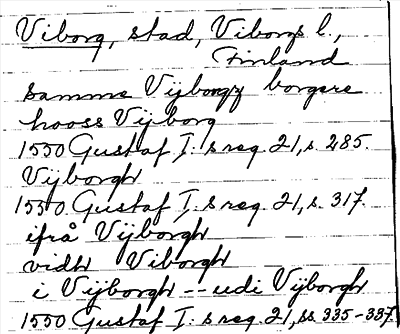 Viborg, stad, Viborgs l.,
Finland
samme Vijborgz borgere
hooss Vijborg
1550 Gustaf I: s reg. 21, s. 285.
Vijborgh
1550. Gustaf I: s reg. 21, s. 317.
ifrå Vijborgh
vidh Viborgh
i Vijborgh -- udi Vijborgh
1550 Gustaf I: s reg. 21, ss. 335-337.